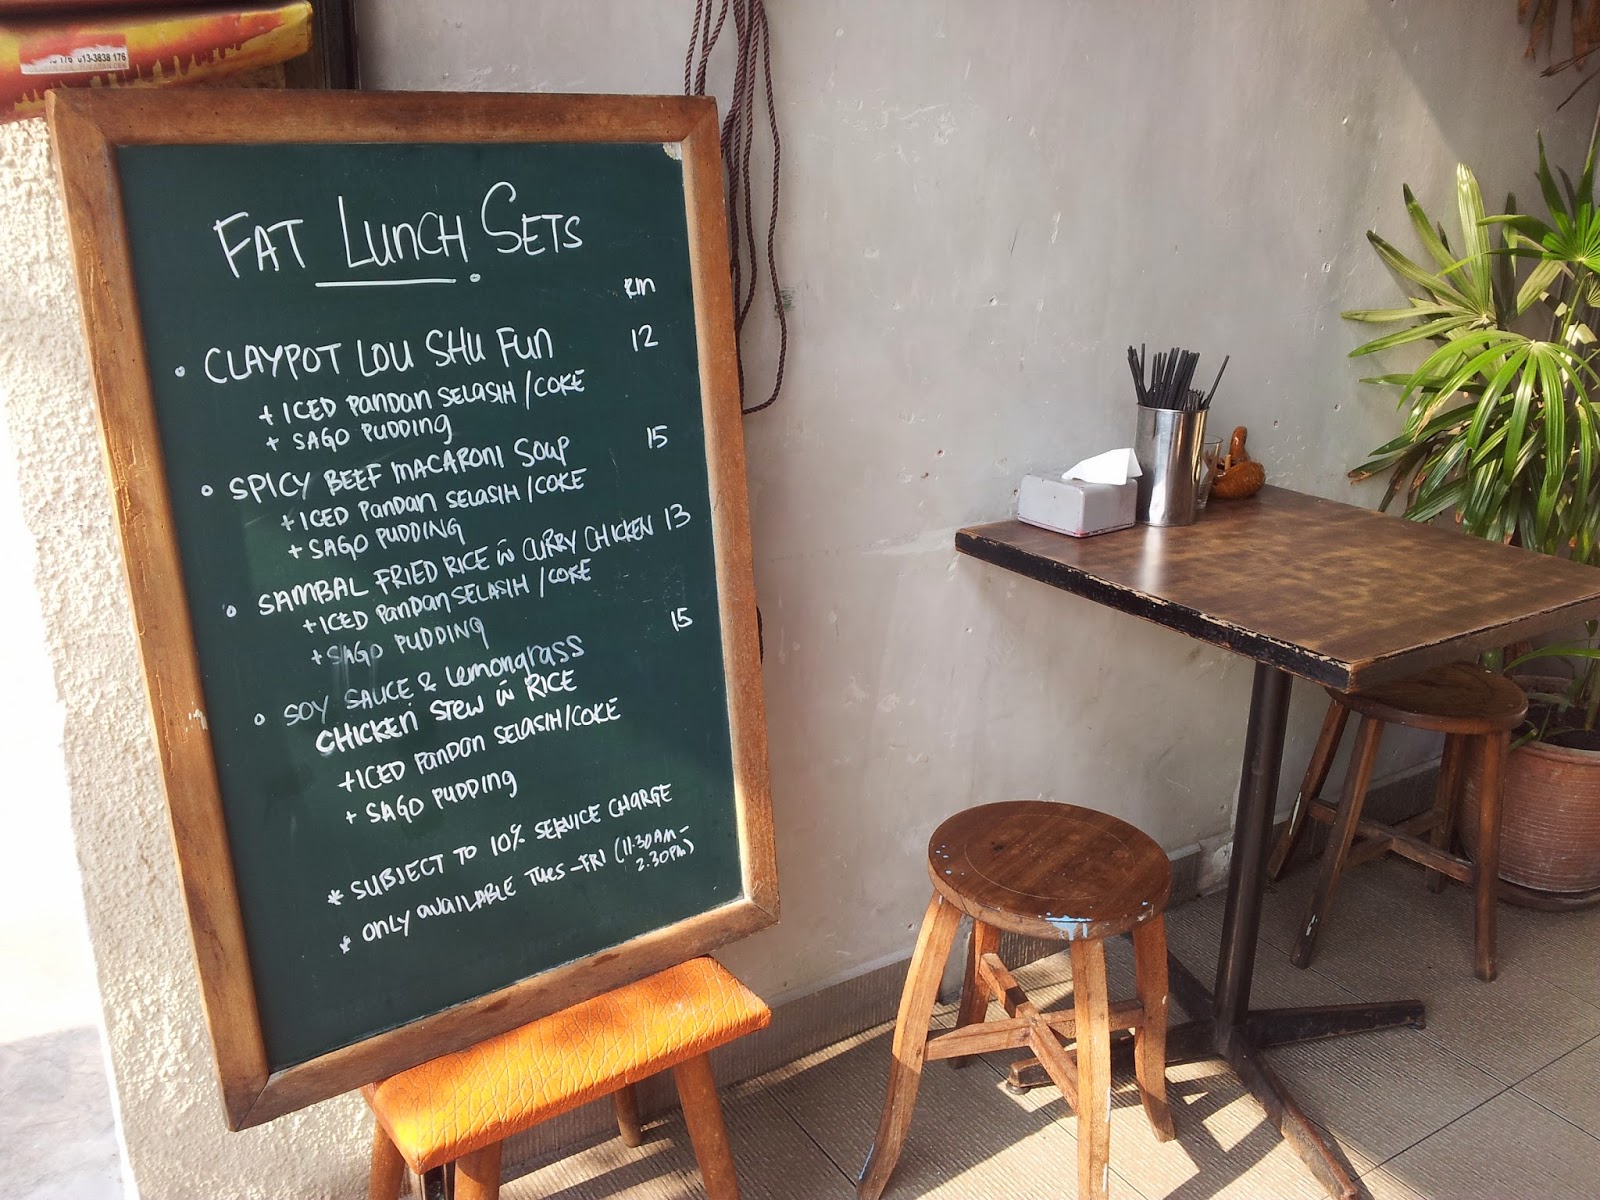 013-3838 176
FAT LUNCH SETS
RM
• CLAYPOT LOU SHU FUN 12
+ ICED PANDAN SELASIH / COKE
+ SAGO PUDDING
• SPICY BEEF MACARONI SOUP 15
+ ICED PANDAN SELASIH / COKE
+ SAGO PUDDING
• SAMBAL FRIED RICE w CURRY CHICKEN 13
+ ICED PANDAN SELASIH / COKE
+ SAGO PUDDING
• SOY SAUCE & Lemongrass 15
CHICKEN STEW w RICE
+ ICED PANDAN SELASIH/COKE
+ SAGO PUDDING
* SUBJECT TO 10% SERVICE CHARGE
* ONLY AVAILABLE TUES - FRI (11.30AM -
2.30PM)